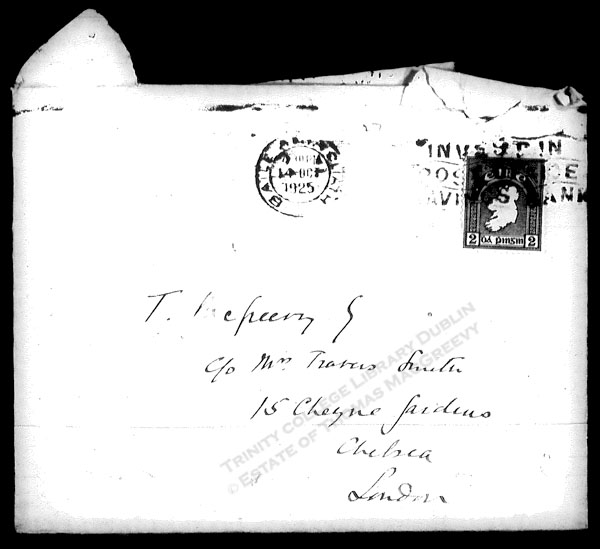 BAILE ÁTHA CLIATH
14 OC
1925
INVEST IN
POST OFFICE
SAVINGS BANK
2 DÁ PINSIN 2
T. McGreevy
c/o Mrs Travers Smith
15 Cheyne Gardens
Chelsea
London
TRINITY COLLEGE LIBRARY DUBLIN
© ESTATE OF THOMAS MACGREEVY